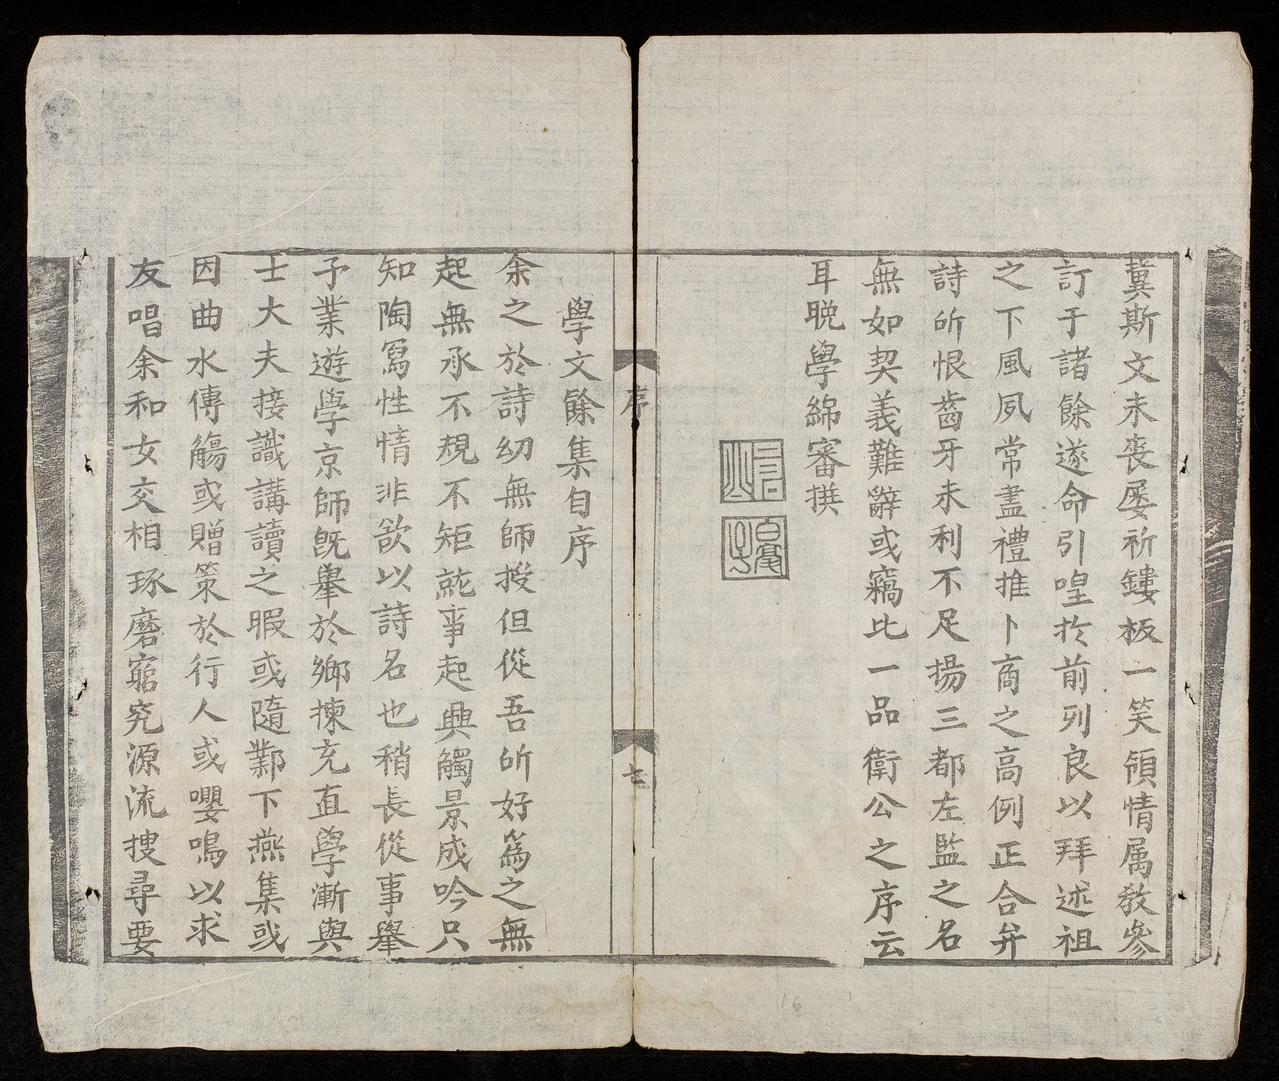 冀斯文未喪屡祈鏤板一笑領情属敎參
訂于諸餘遂命引喤扵前列良以拜述祖
之下風夙常盡禮推卜商之高例正合弁
詩所恨齒牙未利不足揚三都左監之名
無如契義難辭或竊比一品衛公之序云
耳晩學綿審撰
序
七
學文餘集自序
余之於詩幼無師授但從吾所好為之無
起無承不規不矩就事起興觸景成吟只
知陶寫性情非欲以詩名也稍長從事擧
予業遊學京師旣擧於鄉揀充直學漸與
士大夫接識講讀之暇或隨鄴下燕集或
因曲水傳觴或贈策於行人或嚶鳴以求
友唱余和女交相琢磨窮究源流搜尋要